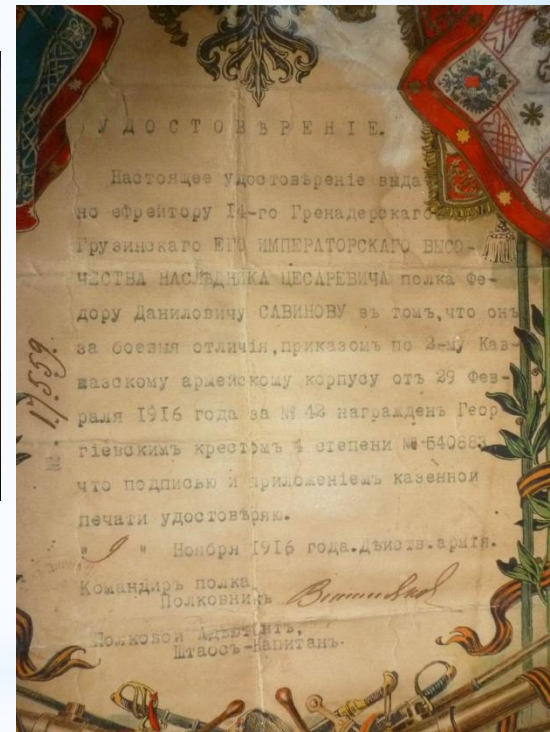 УДОСТОВѢРЕНІЕ.
Настоящее удостовѣреніе выда
но ефрейтору 14-го Гренадерскаго
Грузинскаго ЕГО ИМПЕРАТОРСКАГО ВЫСО-
ЧЕСТВА НАСЛѢДНИКА ЦЕСАРЕВИЧА полка Фе-
дору Даниловичу САВИНОВУ въ томъ,что онъ
за боевыя отличія,приказомъ по 2-му Кав-
казскому армейскому корпусу отъ 29 Фев-
раля 1916 года за № 42 награжденъ Геор
гіевскимъ крестомъ 4 степени № 540883
что подписью и приложеніемъ казенной
печати удостовѣряю.
" 9 " Ноября 1916 года.Дѣйств.армія.
Командиръ полка,
Полковникъ
Полковой Адъютантъ,
Штабсъ-Капитанъ.
№ 17559